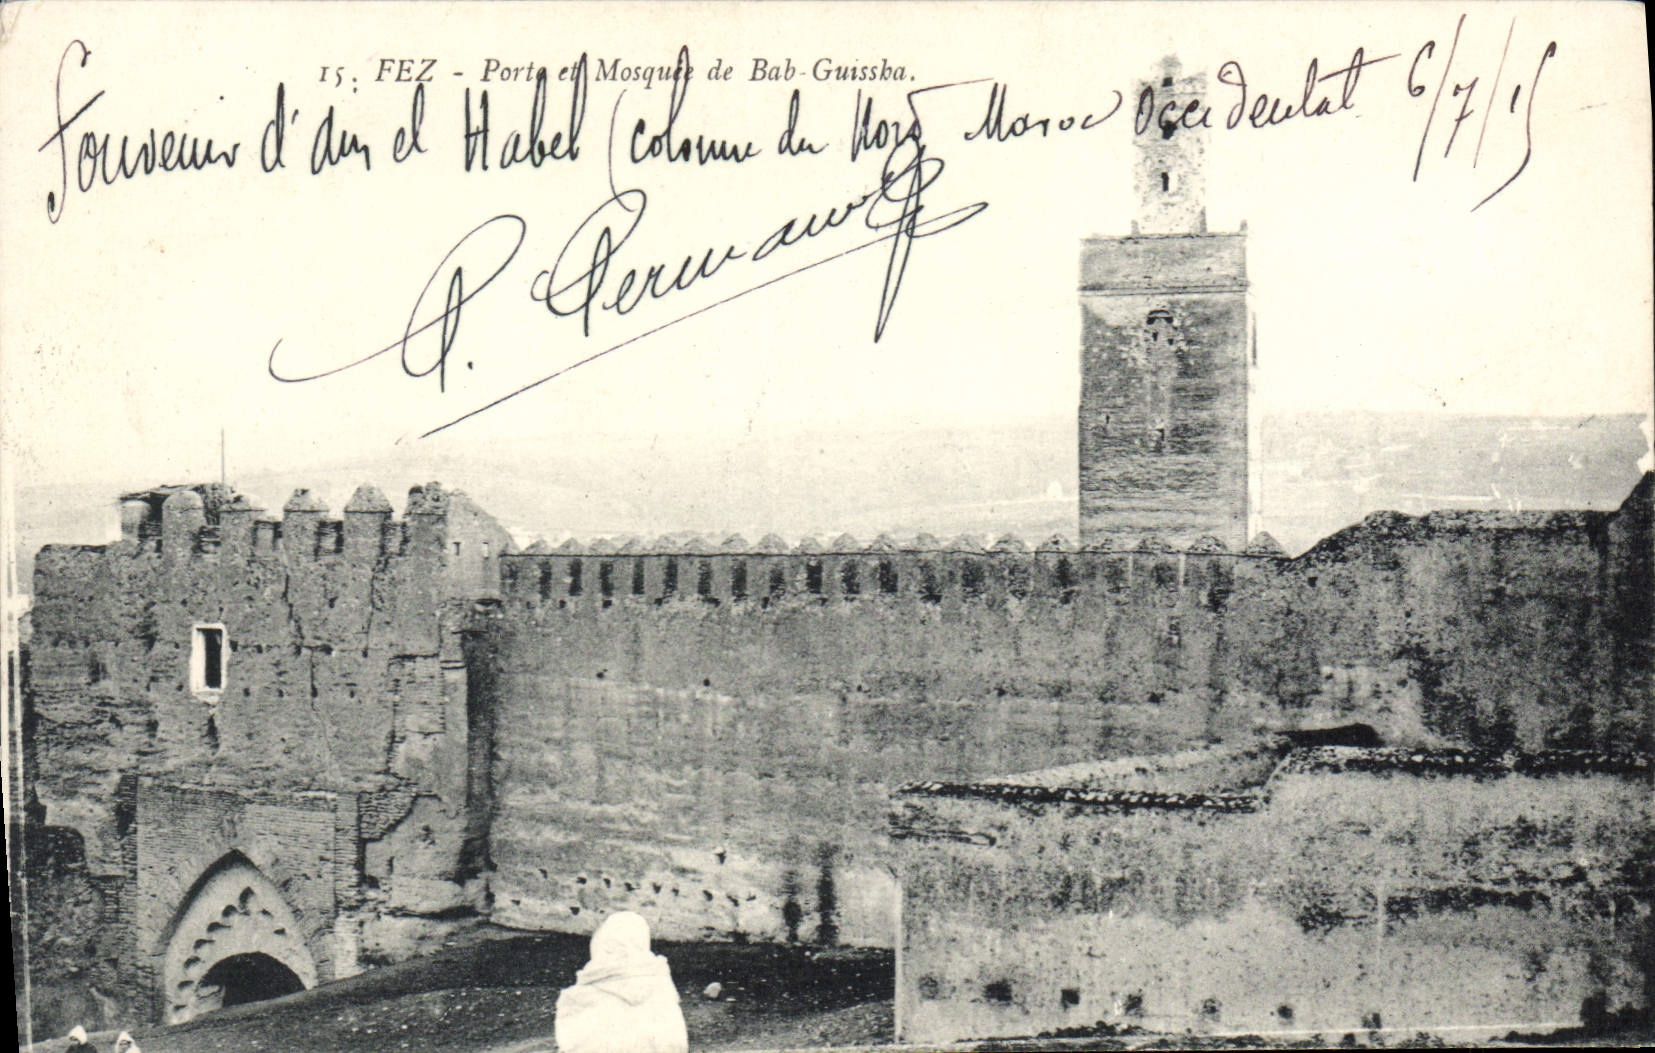 15. FEZ - Porte et Mosquée de Bab-Guissba.
Souvenir d'ain el Habel (colonne du Nord Maroc Occidental 6/7/15
P.